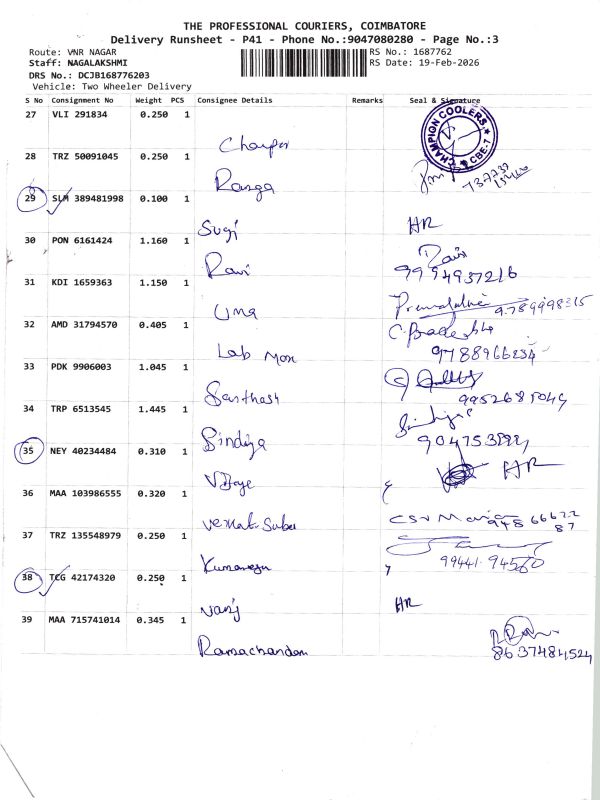 THE PROFESSIONAL COURIERS, COIMBATORE
Delivery Runsheet - P41 - Phone No.:9047080280 - Page No.:3
Route: VNR NAGAR
RS No.: 1687762
Staff: NAGALAKSHMI
RS Date: 19-Feb-2026
DRS No.: DCJB168776203
Vehicle: Two Wheeler Delivery
S No Consignment No Weight PCS Consignee Details Remarks Seal & Signature
27 VLI 291834 0.250 1
CHAMPION COOLERS CBE-7
28 TRZ 50091045 0.250 1
Ranga
29 SLM 389481998 0.100 1
Sugi HR
30 PON 6161424 1.160 1
Ravi Ravi
9994937216
31 KDI 1659363 1.150 1
Uma 9789998315
32 AMD 31794570 0.405 1
Lab Mox
33 PDK 9906003 1.045 1
Santhosh
34 TRP 6513545 1.445 1
Sindiya
35 NEY 40234484 0.310 1
HR
36 MAA 103986555 0.320 1
37 TRZ 135548979 0.250 1
99441-94560
38 TCG 42174320 0.250 1
HR
39 MAA 715741014 0.345 1
Ramachandran
8637484524